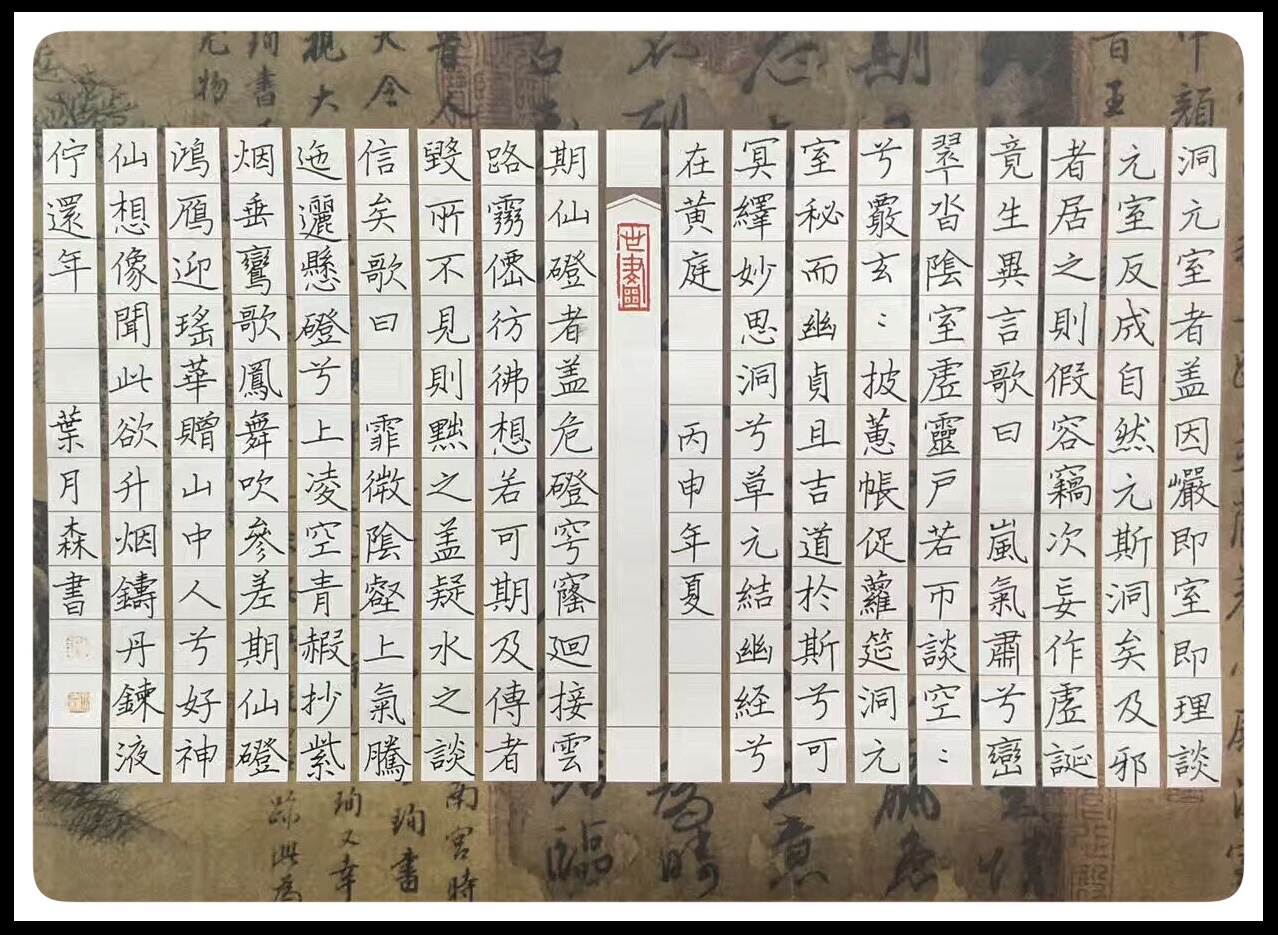 洞元室者盖因巖即室即理談
元室反成自然元斯洞矣及邪
者居之則假容竊次妄作虛誕
竟生異言歌曰 嵐氣肅兮巒
翠沓陰室虛靈戸若帀談空〻
兮覈玄〻披蕙帳促蘿筵洞元
室秘而幽貞且吉道於斯兮可
冥繹妙思洞兮草元結幽経兮
在黄庭 丙申年夏
期仙磴者盖危磴穹窿廻接雲
路霧僊彷彿想若可期及傳者
毀所不見則黜之盖疑水之談
信矣歌曰 霏微陰壑上氣騰
迤邐懸磴兮上凌空青赮抄紫
烟垂鸞歌鳳舞吹參差期仙磴
鴻鴈迎瑤華贈山中人兮好神
仙想像聞此欲升烟鑄丹鍊液
佇還年 葉月森書